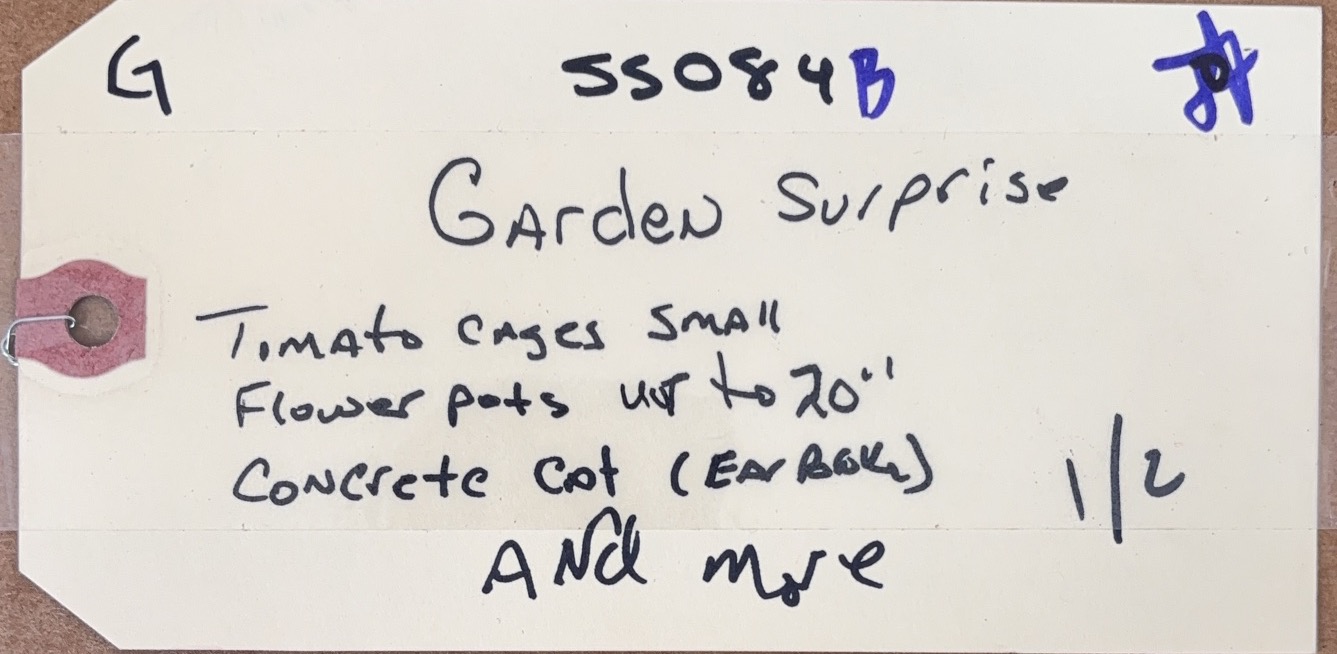 G 55084B
Garden Surprise
Timato cages small
Flower pots up to 20"
Concrete cat (Ear Broke)
1/2
And more